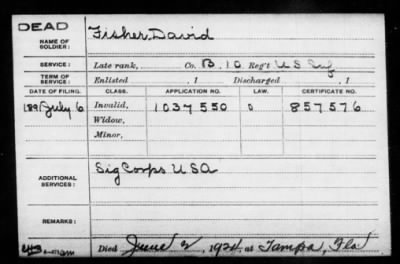 DEAD
NAME OF SOLDIER: Fisher, David
SERVICE: Late rank, Co. B, 10 Reg't U S Inf
TERM OF SERVICE: Enlisted , 1 Discharged , 1
DATE OF FILING. CLASS. APPLICATION NO. LAW. CERTIFICATE NO.
1891 July 6 Invalid, 1037550 0 857576
Widow,
Minor,
ADDITIONAL SERVICES: Sig Corps U.S.A
REMARKS:
Died June 2, 1924, at Tampa, Fla